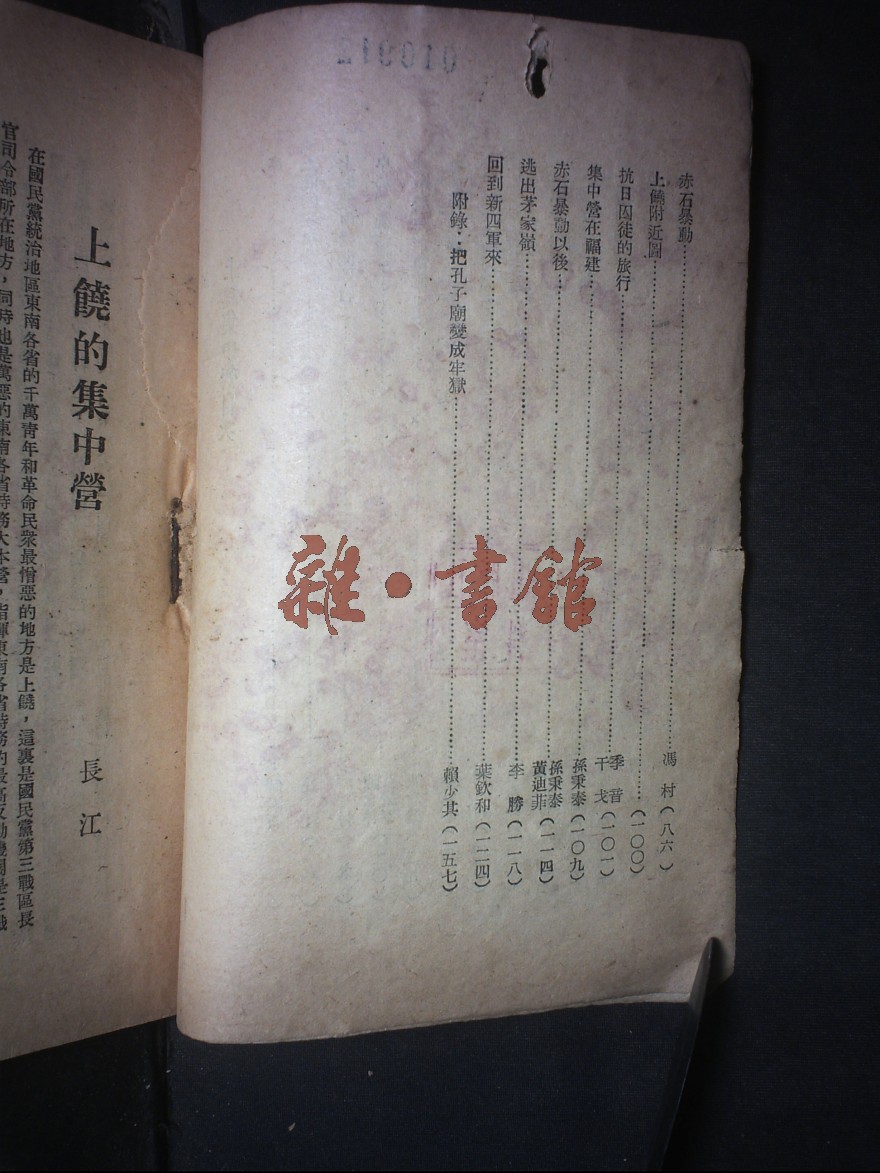 010912
赤石暴動⋯⋯馮村(八六)
上饒附近圖⋯⋯(一〇〇)
抗日囚徒的旅行⋯⋯季音 干戈(一〇一)
集中營在福建⋯⋯孫秉泰(一〇九)
赤石暴動以後⋯⋯孫秉泰 黃迪菲(一一四)
逃出茅家嶺⋯⋯李勝(一一八)
回到新四軍來⋯⋯葉欽和(一二四)
附錄:把孔子廟變成牢獄⋯⋯賴少其(一五七)
雜·書館
上饒的集中營
長江
在國民黨統治地區東南各省的千萬靑年和革命民衆最憎惡的地方是上饒,這裏是國民黨第三戰區長
官司令部所在地方,同時也是萬惡的東南各省特務大本營,指揮東南各省特務的最高反動機關是三戰